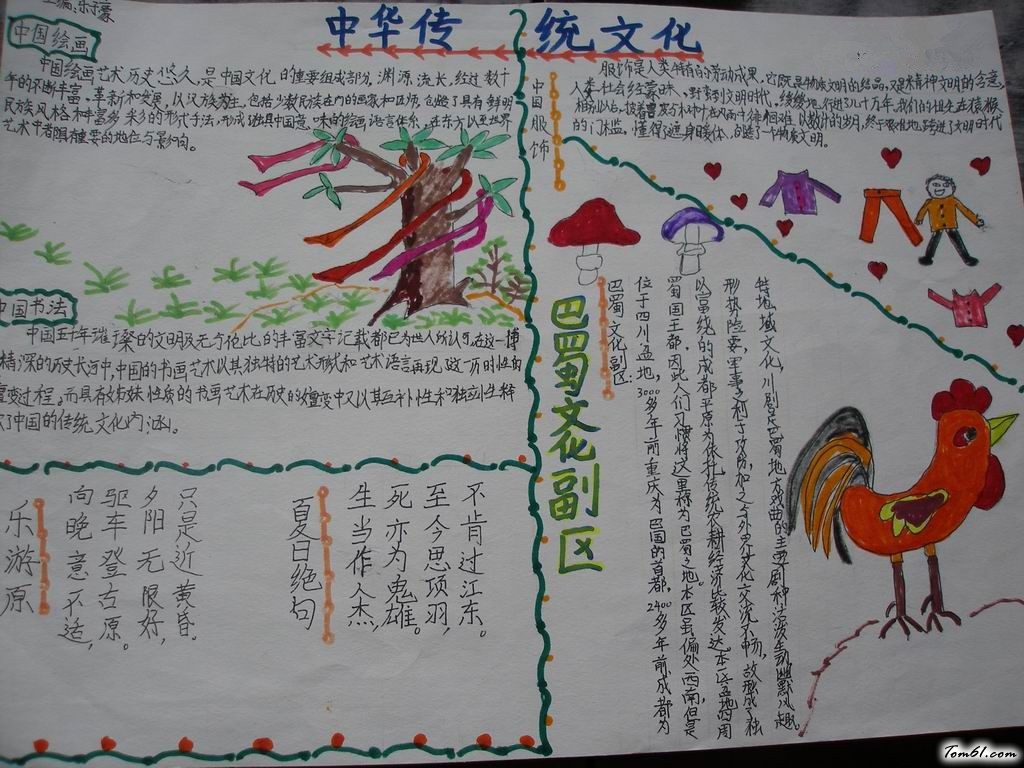 主编:乐子豪
中华传统文化
中国绘画
中国绘画艺术历史悠久,是中国文化的重要组成部分,渊源流长,经过数千
年的不断丰富、革新和发展,以汉族为主,包括少数民族在内的画家和匠师,创造了具有鲜明
民族风格和丰富多彩的形式手法,形成了独具中国意味的绘画语言体系,在东方以至世界
艺术中都具有重要的地位与影响。
中国书法
中国五千年璀璨的文明及无与伦比的丰富文字记载都已为世人所认可,在这一博
精深的历史长河中,中国的书画艺术以其独特的艺术形式和艺术语言再现了这一历时性的
嬗变过程。而具有姊妹性质的书画艺术在历史的嬗变中又以其互补性和独立性释
了中国的传统文化内涵。
乐游原
向晚意不适,
驱车登古原。
夕阳无限好,
只是近黄昏。
夏日绝句
生当作人杰,
死亦为鬼雄。
至今思项羽,
不肯过江东。
中国服饰
服饰是人类特有的劳动成果,它既是物质文明的结晶,又是精神文明的含意。
人类社会经蒙昧、野蛮到文明时代,缓缓地行进了几十万年。我们的祖先在猿猴
相别以后,披着兽皮与树叶,在风雨中徘徊难以数计的岁月,终于艰难地跨进了文明时代
的门槛,懂得了遮身暖体,创造了一个物质文明。
巴蜀文化副区
巴蜀文化副区:
位于四川盆地,3000多年前重庆为巴国的首都,2400多年前成都为
蜀国王都,因此人们习惯将这里称为巴蜀之地。本区虽偏处西南,但是
以富饶的成都平原为依托,传统农耕经济比较发达。本区盆地四周
形势险要,军事之利于攻防,加之与外界文化交流不畅,故形成了独
特地域文化,川剧是巴蜀地方戏曲的主要剧种,活泼生动幽默风趣。
Tom61.com